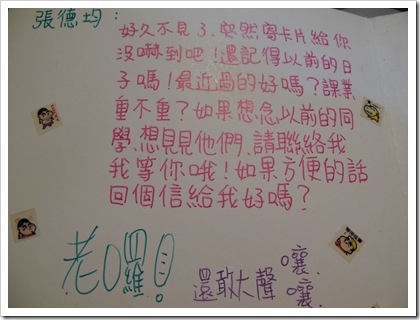 張德均：
好久不見了.突然寄卡片給你
沒嚇到吧！還記得以前的日
子嗎！最近過的好嗎？課業
重不重？如果想念以前的同
學.想見見他們.請聯絡我
我等你哦！如果方便的話
回個信給我好嗎？
老囉！
還敢大聲嚷嚷.